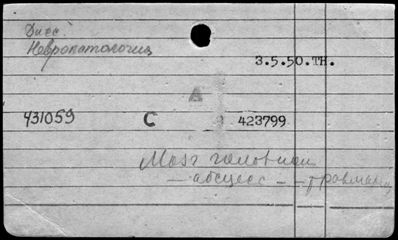 Дисс.
Невропатология
3.5.50.ТН.
А
431059 С 423799
Мозг головной
— абсцесс — — травматич